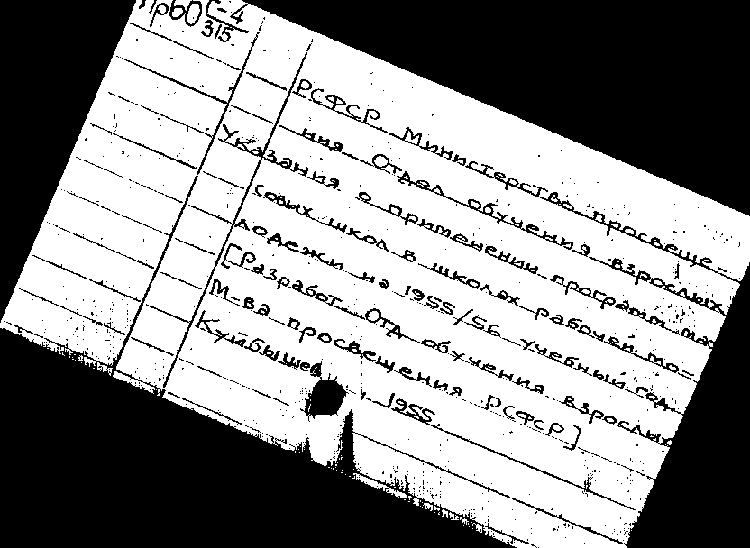 Пр60 С-4
315.
РСФСР Министерство просвеще-
ния. Отдел обучения взрослых.
Указания о применении программ мас-
совых школ в школах рабочей мо-
лодежи на 1955/56 учебный год.
[Разработ. Отд обучения взрослых
М-ва просвещения РСФСР]
Куйбышев, 1955.